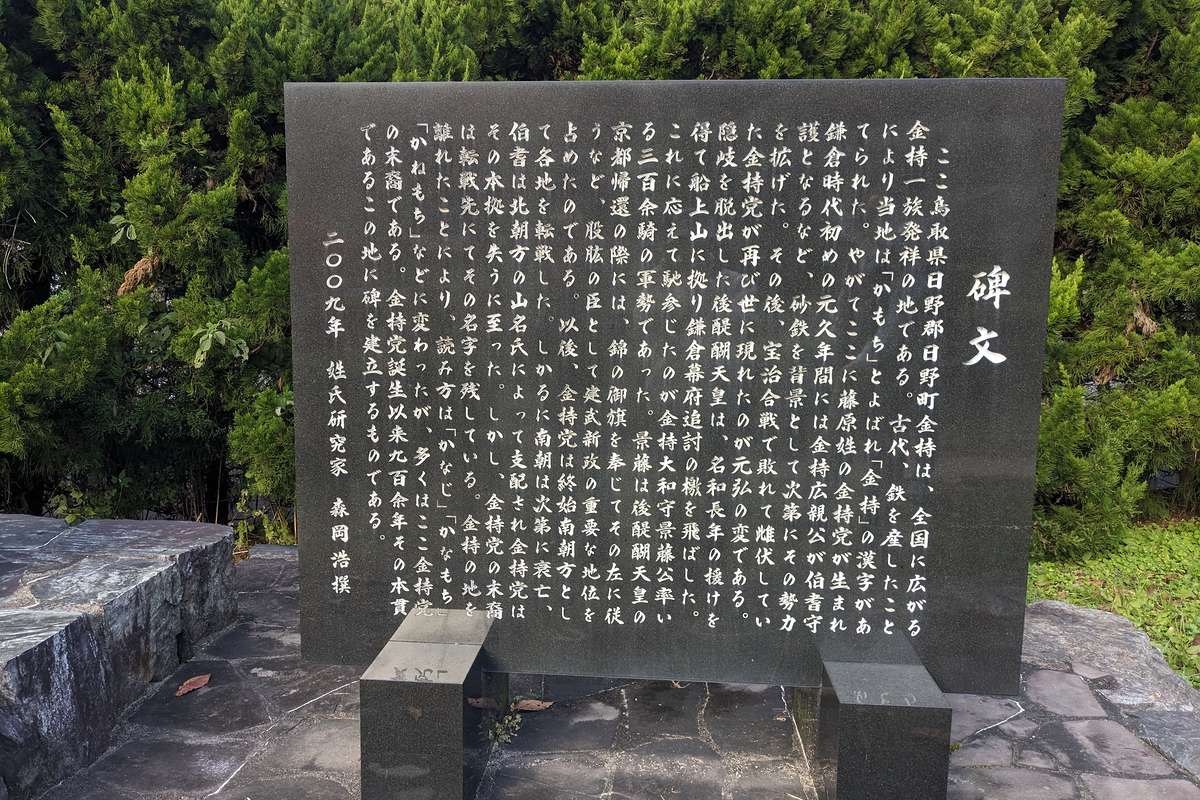 碑文
ここ鳥取県日野郡日野町金持は、全国に広がる
金持一族発祥の地である。古代、鉄を産したこと
により当地は「かもち」とよばれ「金持」の漢字があ
てられた。やがてここに藤原姓の金持党が生まれ
鎌倉時代初めの元久年間には金持広親公が伯耆守
護となるなど、砂鉄を背景として次第にその勢力
を拡げた。その後、宝治合戦で敗れて雌伏してい
た金持党が再び世に現れたのが元弘の変である。
隠岐を脱出した後醍醐天皇は、名和長年の援けを
得て船上山に拠り鎌倉幕府追討の檄を飛ばした。
これに応えて馳参じたのが金持大和守景藤公率い
る三百余騎の軍勢であった。景藤は後醍醐天皇の
京都帰還の際には、錦の御旗を奉じてその左に従
うなど、股肱の臣として建武新政の重要な地位を
占めたのである。以後、金持党は終始南朝方とし
て各地を転戦した。しかるに南朝は次第に衰亡、
伯耆は北朝方の山名氏によって支配され金持党は
その本拠を失うに至った。しかし、金持党の末裔
は転戦先にてその名字を残している。金持の地を
離れたことにより、読み方は「かなじ」「かなもち」
「かねもち」などに変わったが、多くはここ金持党
の末裔である。金持党誕生以来九百余年その本貫
であるこの地に碑を建立するものである。
二〇〇九年 姓氏研究家 森岡浩撰